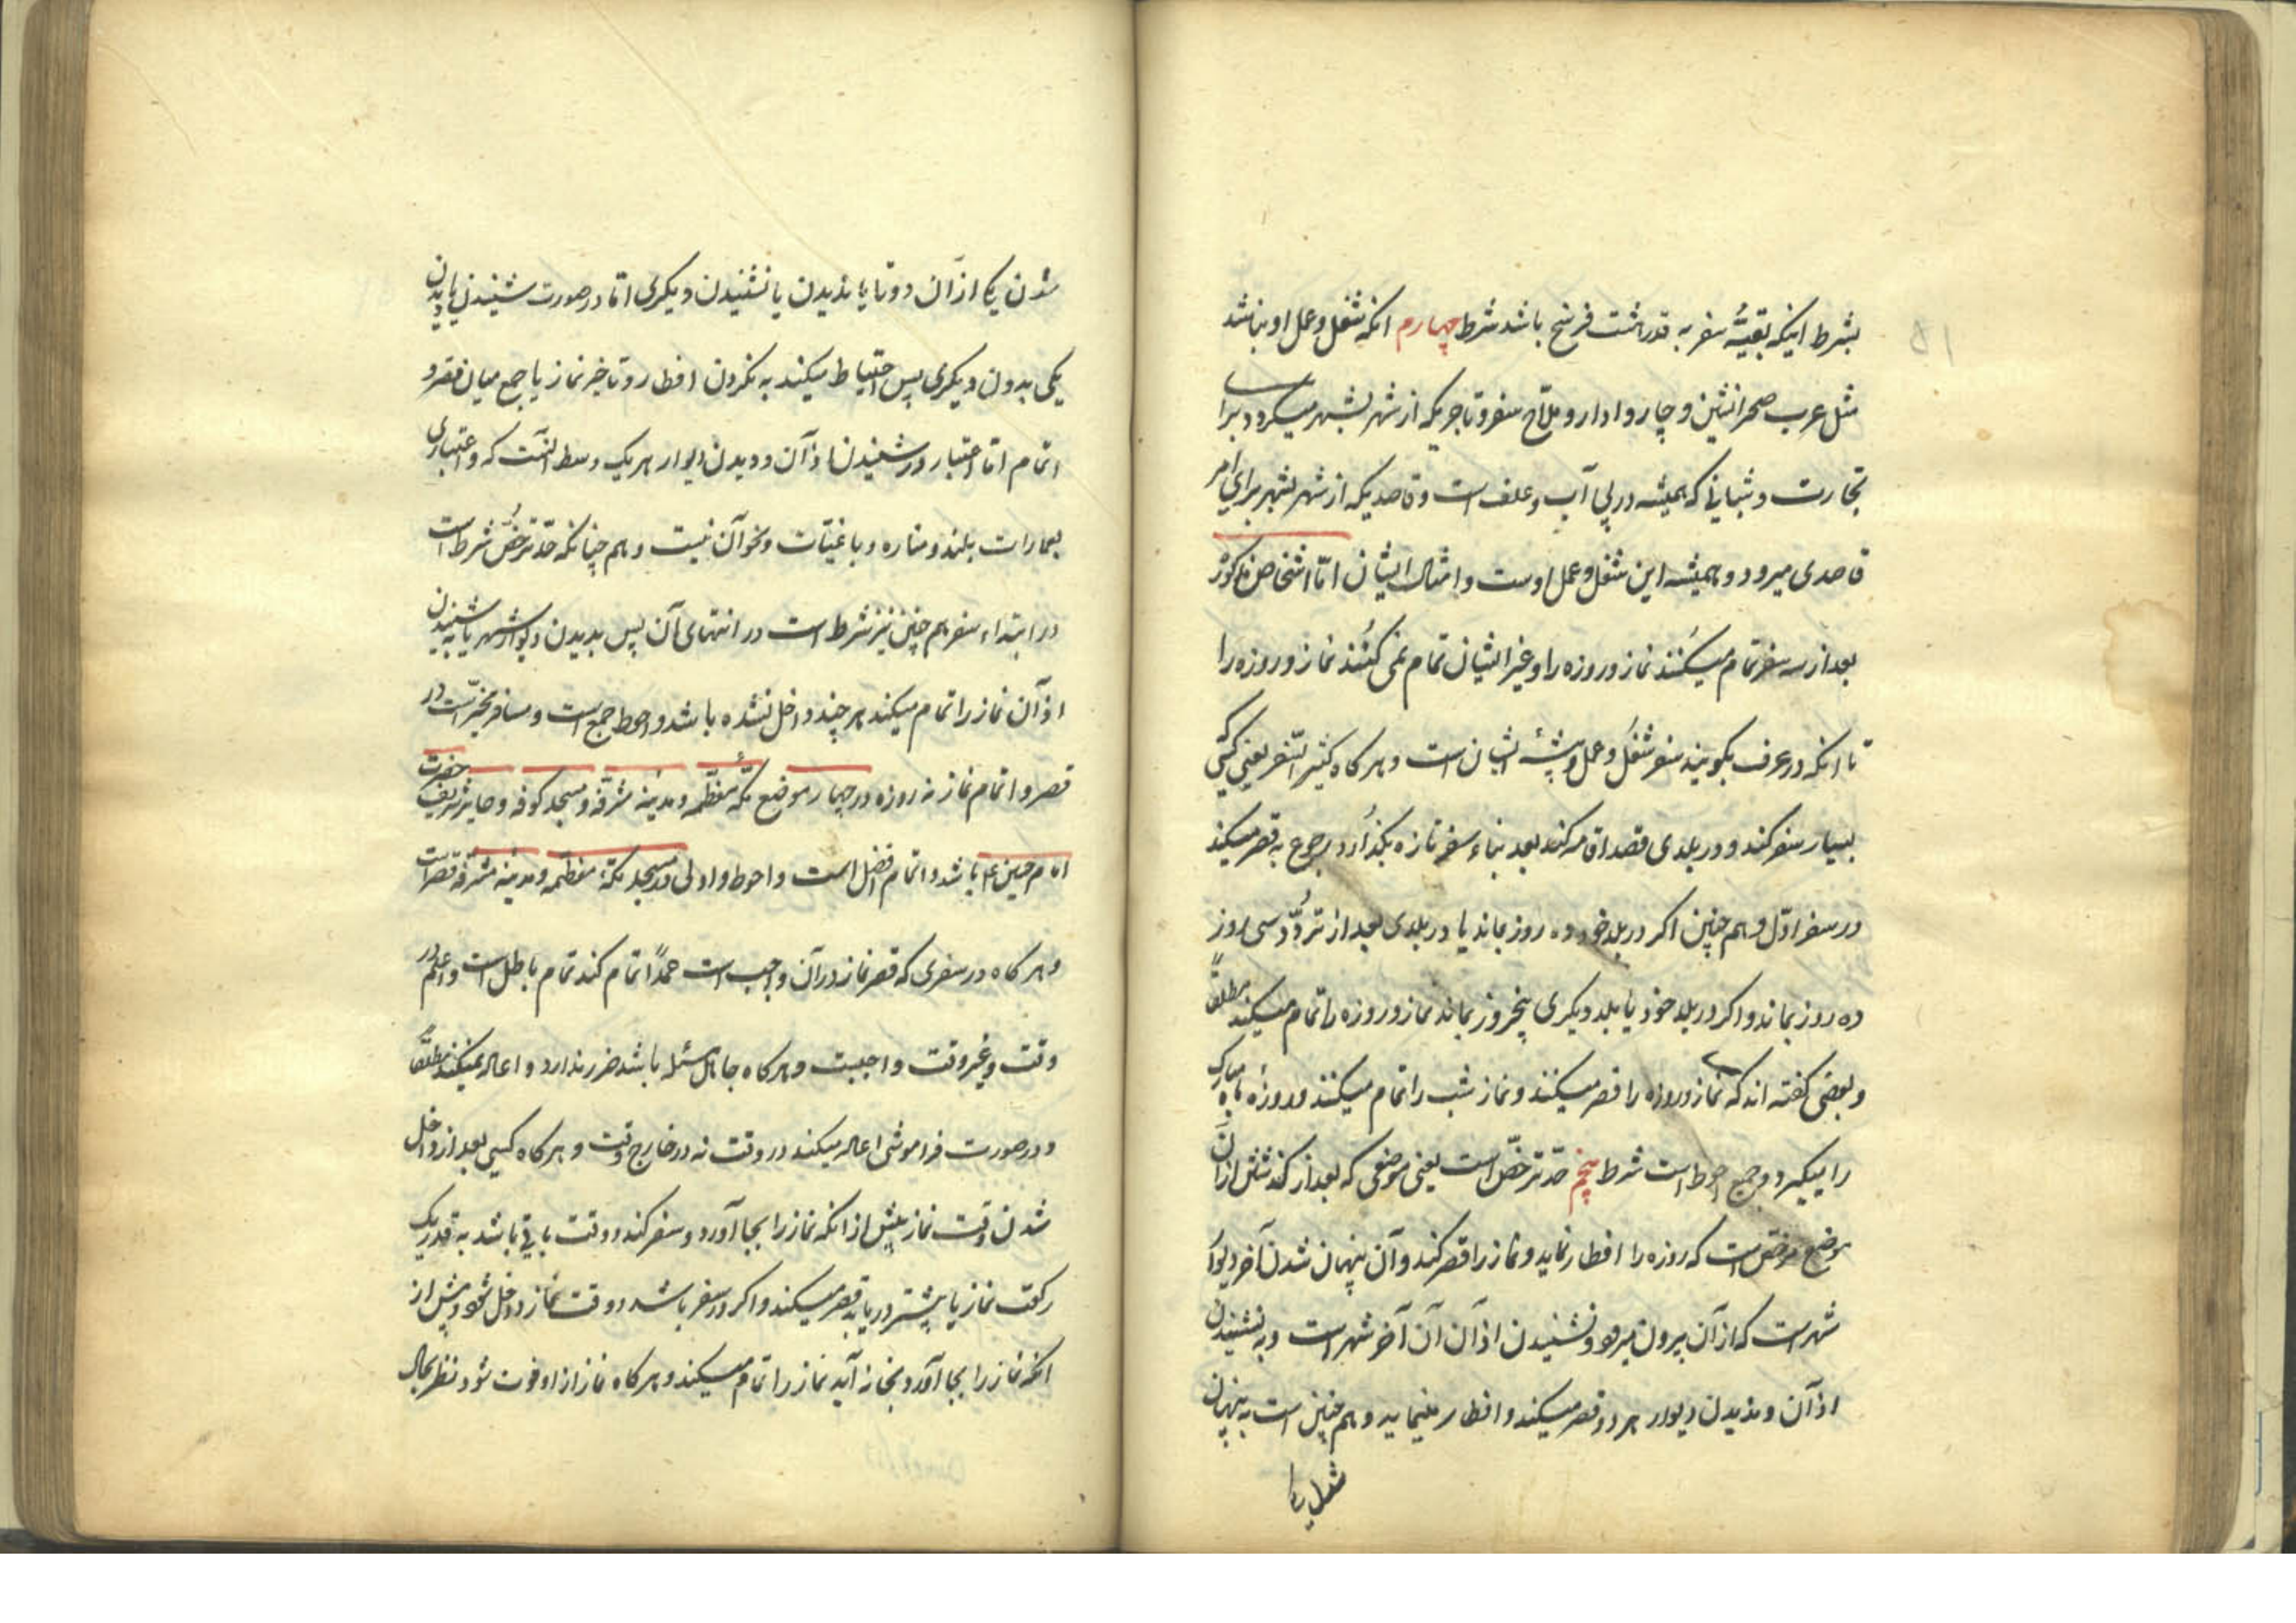 ۵۱
بشرط اینکه بقیّهٔ سفر به قدر هشت فرسخ باشد شرط چهارم انکه شغل و عمل او نباشد
مثل عرب صحرانشین و چاروادار و ملّاح سفر و تاجریکه از شهر بشهر میگردد برای
تجارت و شبانی که همیشه در پی آب و علف است و قاصدیکه از شهر بشهر برای امر
قاصدی میرود و همیشه این شغل و عمل اوست و امثال ایشان امّا اشخاص مذکوره
بعد از سه سفر تمام میکنند نماز و روزه را و غیر ایشان تمام نمی کنند نماز و روزه را
تا انکه در عرف بگویند سفر شغل و عمل و پیشهٔ ایشان است و هر کاه کثیر السّفر یعنی کسی که
بسیار سفر کند و در بلدی قصد اقامه کند بعد بناء سفر تازه بگذارد رجوع به قصر میکند
در سفر اوّل و هم چنین اکر در بلد خود ده روز بماند یا در بلدی بعد از تردّد سی روز
ده روز بماند و اکر در بلد خود یا بلد دیکری پنجروز بماند نماز و روزه را تمام میکند مطلقاً
و بعضی کفته اند که نماز و روزه را قصر میکنند و نماز شب را تمام میکنند و روزهٔ ماه مبارک
را میگیرد و جمع احوط است شرط پنجم حدّ ترخّص است یعنی موضعی که بعد از کذشتن از آن
موضع مرخّص است که روزه را افطار نماید و نماز را قصر کند و آن پنهان شدن آخر دیوار
شهر است که از آن بیرون میرود و نشنیدن اذآن آن آخر شهر است و به نشنیدن
اذآن و ندیدن دیوار هر دو قصر میکند و افطار مینماید و هم چنین است به پنهان
شدن یکی
شدن یکی از آن دو تا یا ندیدن یا نشنیدن دیکری امّا در صورت شنیدن یا دیدن
یکی بدون دیکری پس احتیاط میکند به نکردن افطار و تاخیر نماز یا جمع میان قصر و
اتمام امّا اعتبار در شنیدن اذآن و دیدن دیوار هر یک وسط انست که و اعتباری
بعمارات بلند و مناره و باغیّات و نحو آن نیست و هم چنانکه حدّ ترخّص شرط است
در ابتداء سفر هم چنین نیز شرط است در انتهای آن پس بدیدن دیوار شهر یا به شنیدن
اذآن نماز را تمام میکند هر چند داخل نشده باشد و احوط جمع است و مسافر مخیّر است در
قصر و اتمام نماز نه روزه در چهار موضع مکّه معظّمه و مدینه مشرّفه و مسجد کوفه و حایر شریف حضرت
امام حسین ع باشد و اتمام افضل است و احوط و اولی در مسجد مکّهٔ معظّمه و مدینه مشرّفه قصر است
و هر کاه در سفری که قصر نماز در آن واجب است عمداً اتمام کند تمام باطل است و اعاده در
وقت و غیر وقت واجبست و هر کاه جاهل مسئله باشد ضرر ندارد و اعاده نمیکند مطلقاً
و در صورت فراموشی اعاده میکند در وقت نه در خارج وقت و هر کاه کسی بعد از داخل
شدن وقت نماز پیش از انکه نماز را بجا آورد و سفر کند و وقت باقی باشد به قدر یک
رکعت نماز یا بیشتر دریابد قصر میکند و اکر در سفر باشد و وقت نماز داخل شود و پیش از
انکه نماز را بجا آورد بخانه آید نماز را تمام میکند و هر کاه نماز از او فوت شود نظر بحال